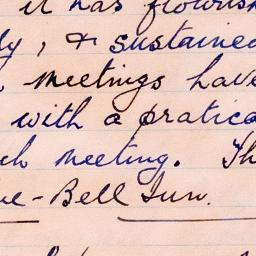 it has flourish
ly, & sustained
meetings have
with a pratica
ch meeting. Th
ue-Bell Inn.